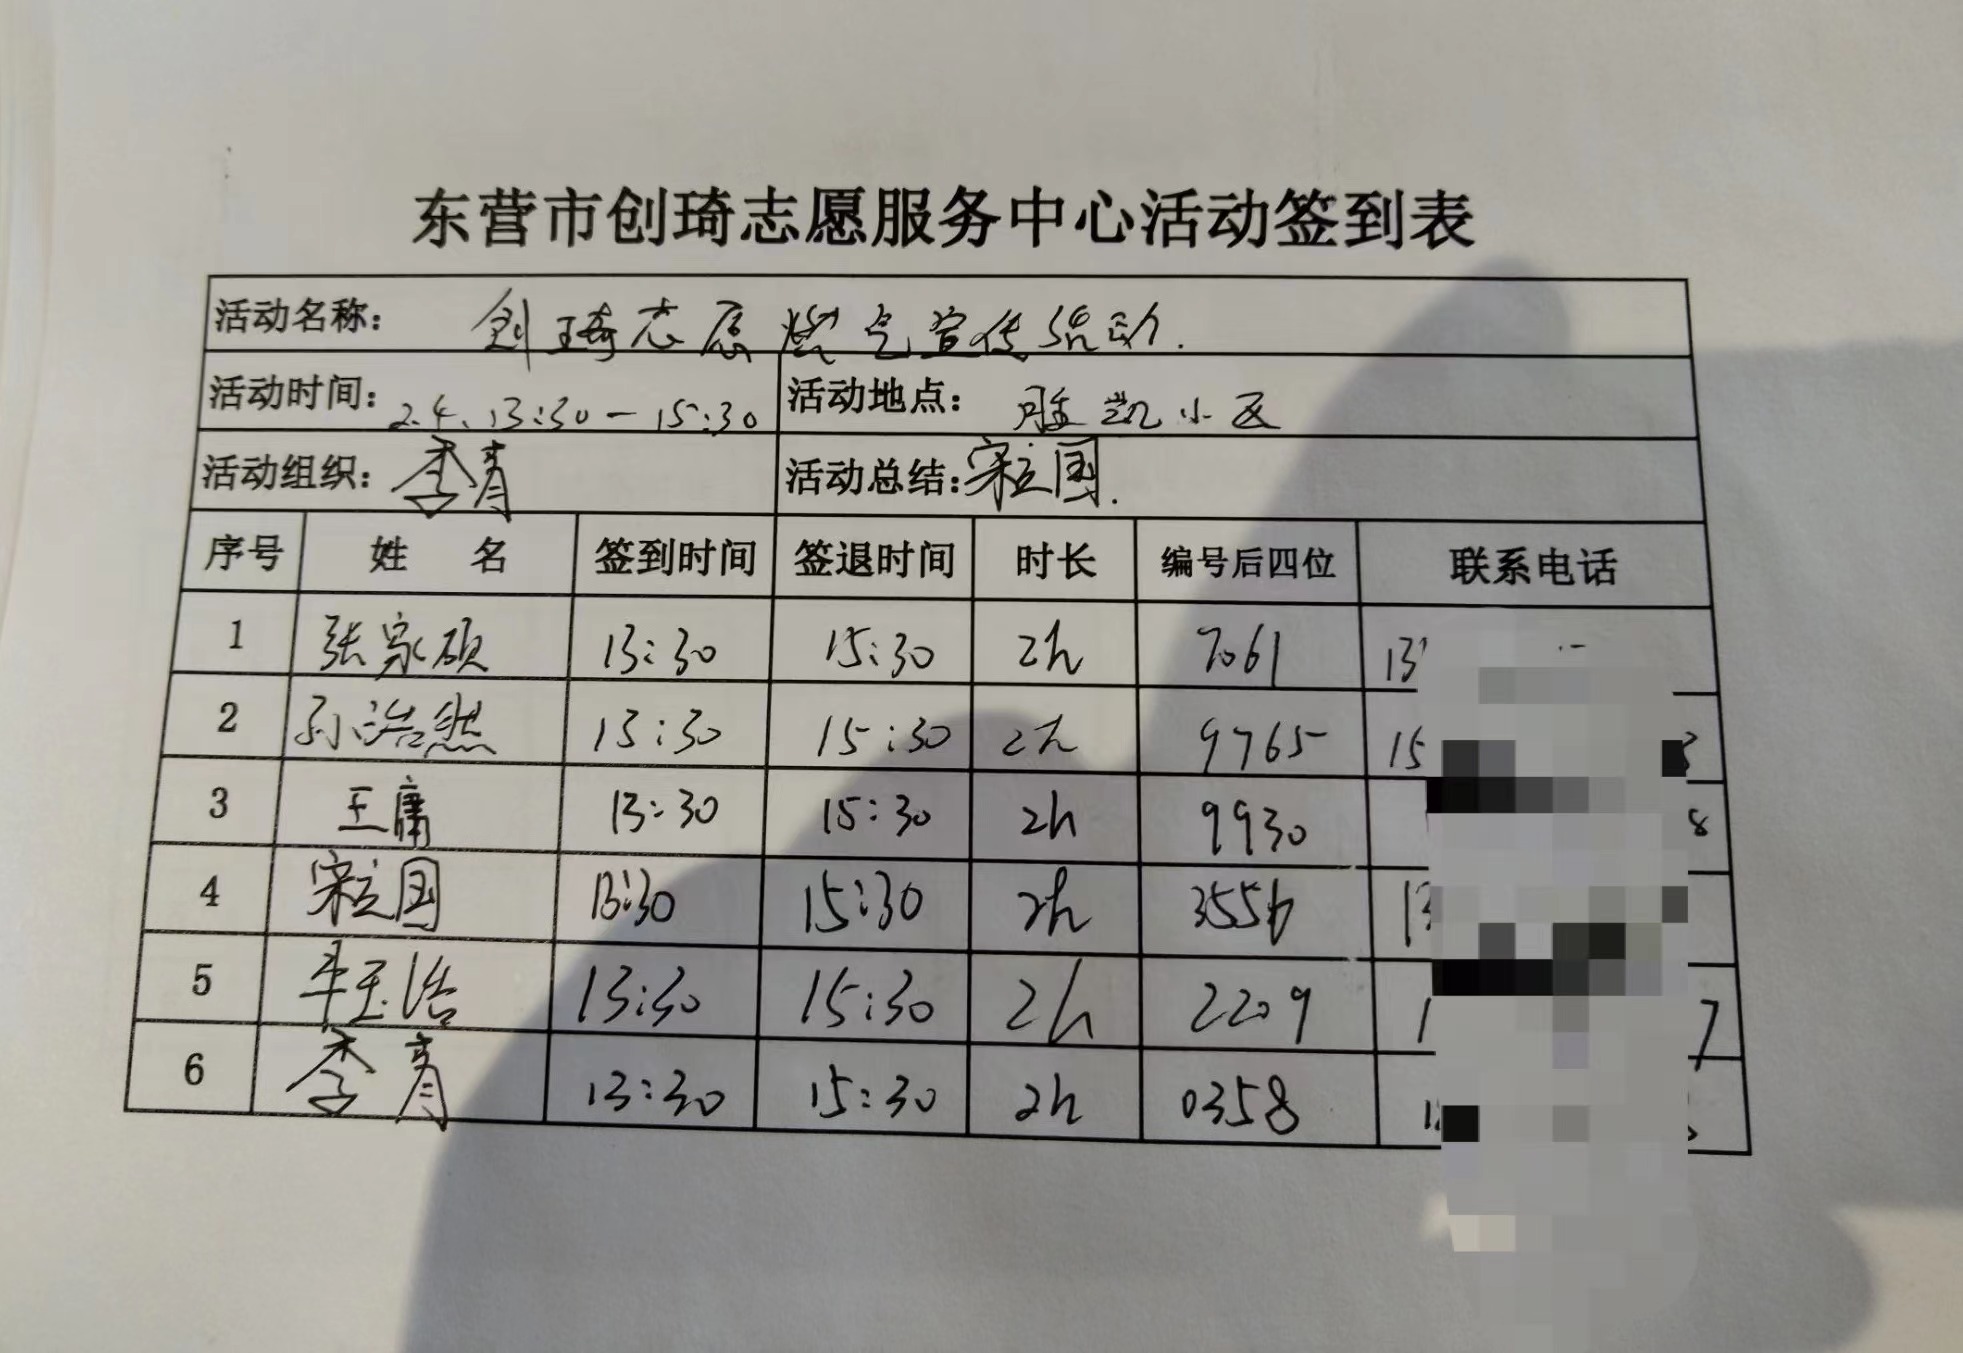 东营市创琦志愿服务中心活动签到表
活动名称: 创琦志愿燃气宣传活动.
活动时间: 2.4、13:30-15:30 活动地点: 胜凯小区
活动组织: 李青 活动总结: 宋立国.
序号 姓名 签到时间 签退时间 时长 编号后四位 联系电话
1 张家硕 13:30 15:30 2h 7061 13
2 孙浩然 13:30 15:30 2h 9765 15
3 王庸 13:30 15:30 2h 9930 8
4 宋立国 13:30 15:30 2h 3556 13
5 玉浩 13:30 15:30 2h 2209 1 7
6 李青 13:30 15:30 2h 0358 1